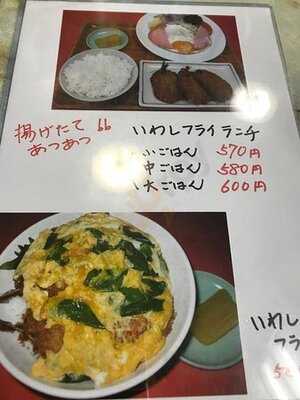 揚げたて
あつあつ
いわしフライランチ
小ごはん 570円
中ごはん 580円
大ごはん 600円
いわし
フラ